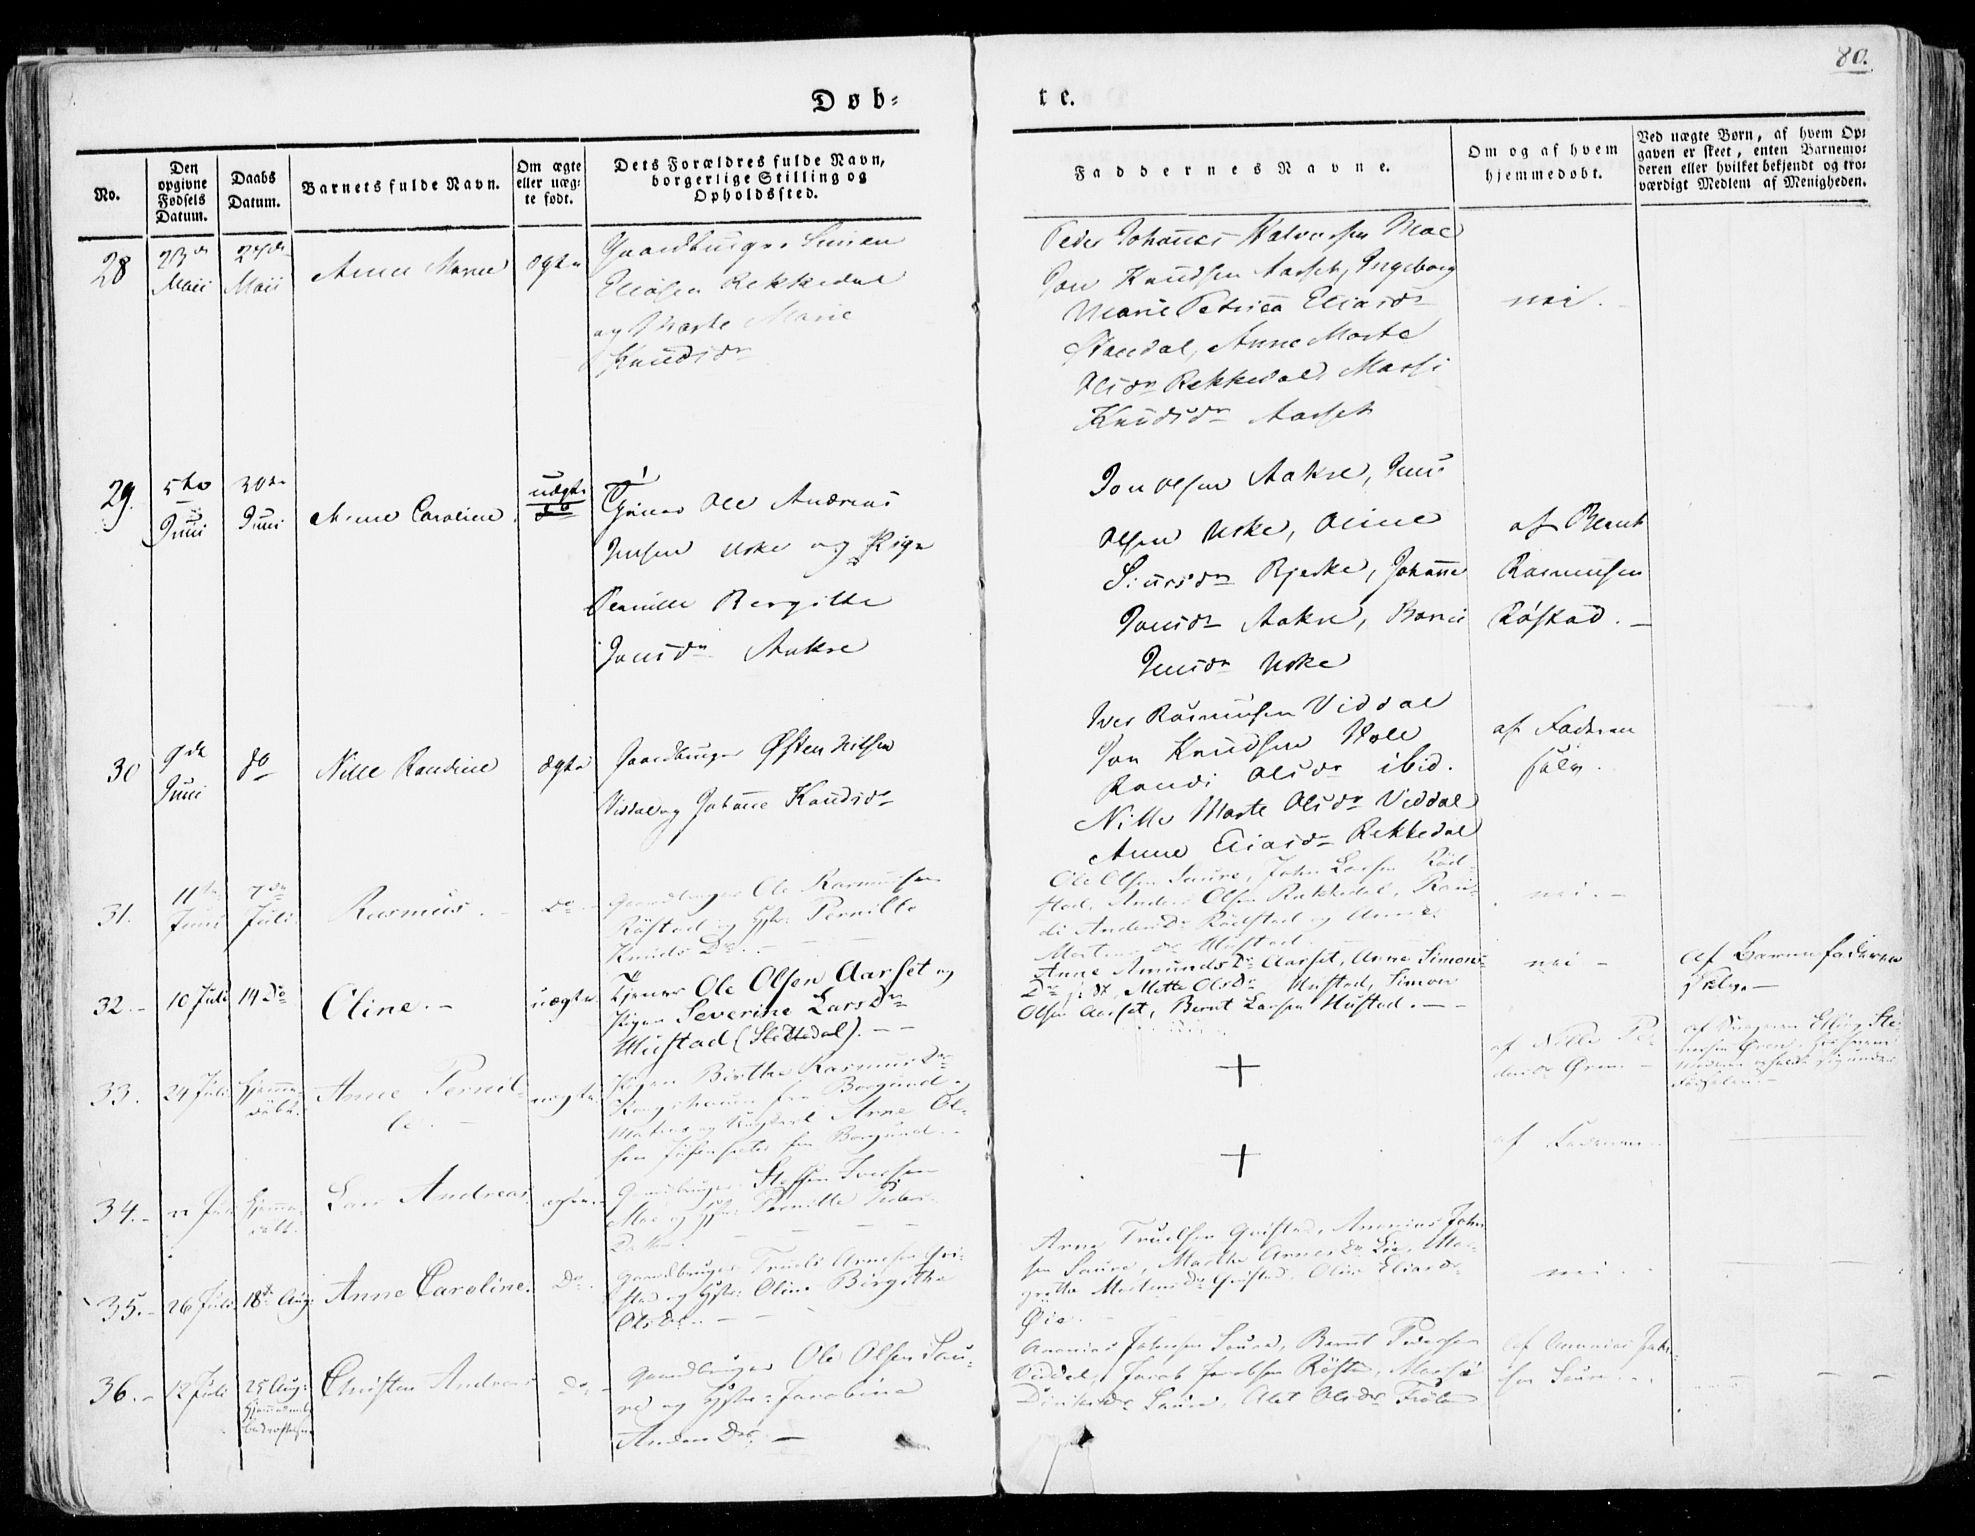 80.
Døb-
te.
No.
Den opgivne Fødsels Datum.
Daabs Datum.
Barnets fulde Navn.
Om ægte eller uæg-
te født.
Dets Forældres fulde Navn,
borgerlige Stilling og
Opholdssted.
Faddernes Navne.
Om og af hvem
hjemmedøbt.
Ved uægte Børn, af hvem Op-
gaven er skeet, enten Barnemo-
deren eller hvilket bekjendt og tro-
værdigt Medlem af Menigheden.
28
23de Maii
24de Maii
Anne Marie
ægte
Gaardbruger Simen
Eliasen Rekkedal
og Marte Marie
Knudsdr
Peder Johannes Halvorsen Moe
Jon Knudsen Aarset, Ingeborg
Marie Petrica Eliasdr
Standal, Anne Marte
Olsdr Rekkedal, Massi
Knudsdr Aarset
nei.
29.
5te Juni
30te Juni
Anne Caroline
uægte
Tjener Ole Andreas
Jensen Uske og Pige
Pernille Bergitte
Jonsdr Aakre
Jon Olsen Aakre, Jens
Olsen Uske, Oline
Siursdr Bjerke, Johanne
Jonsdr Aakre, Barni
Jensdr Uske
af Bernt
Rasmusen
Røstad.
30
9de Juni
do
Nille Randine
ægte
Gaardbruger Østen Nilsen
Viddal og Johanne Knudsdr
Iver Rasmusen Viddal
Jon Knudsen Hole
Randi Olsdr ibid.
Nille Marte Olsdr Viddal
Anne Eliasdr Rekkedal
af Faderen
selv.
31.
11te Juni
7de Juli
Rasmus.
Do
Gaardbruger Ole Rasmusen
Röstad og Hst: Pernille
Knuds Dr.
Ole Olsen Saure, John Larsen Röd-
stad, Anders Olsen Rekkedal, Ran-
di Andersdr Rödstad og Anne
Mortensdr Mustad.
nei.
32.
10 Juli
14 Do
Oline.
uægte
Tjener Ole Olsen Aarset og
Pigen Severine Lars Dr
Mustad (Slettedal).
Anne Amunds Dr Aarset, Anne Simons
Dr, Mette Olsdr Mustad, Simon
Olsen Aarset, Bernt Larsen Mustad.
nei
af Barnefaderen
selv.
33.
24 Juli
Hjemme-
döbt.
Anne Pernil-
le.
uægte
Pigen Birthe Rasmus Dr
fra Borgund
og Arne Ol-
sen fra Borgund.
+
af Nille Pe-
dersdr Ören
34.
Juli
Hjemme-
Lars Andreas
ægte
Gaardbruger Steffen Iversen
Moe og Hst: Pernille Peders
Datter.
+
af Faderen.
35.
26 Juli
18de Aug:
Anne Caroline.
Do.
Gaardbruger Truels Arnesen Qvi-
stad og Hst: Oline Birgithe
Ols Dr.
Arne Truelsen Qvistad, Ananias John-
sen Saure, Marthe Arnes Dr Lie, Mar-
grethe Mortensdr Qvistad, Oline Eliasdr
Öie.
nei.
36.
12 Juli
25 Aug:
Christen Andreas
do.
Gaardbruger Ole Olsen Sau-
re og Hst: Jacobine
Anders Dr.
Ananias Johnsen Saure, Bernt Pedersen
Viddal, Jacob Jacobsen Röstad,
Saure, Alet Olsdr
af Ananias John-
sen Saure.